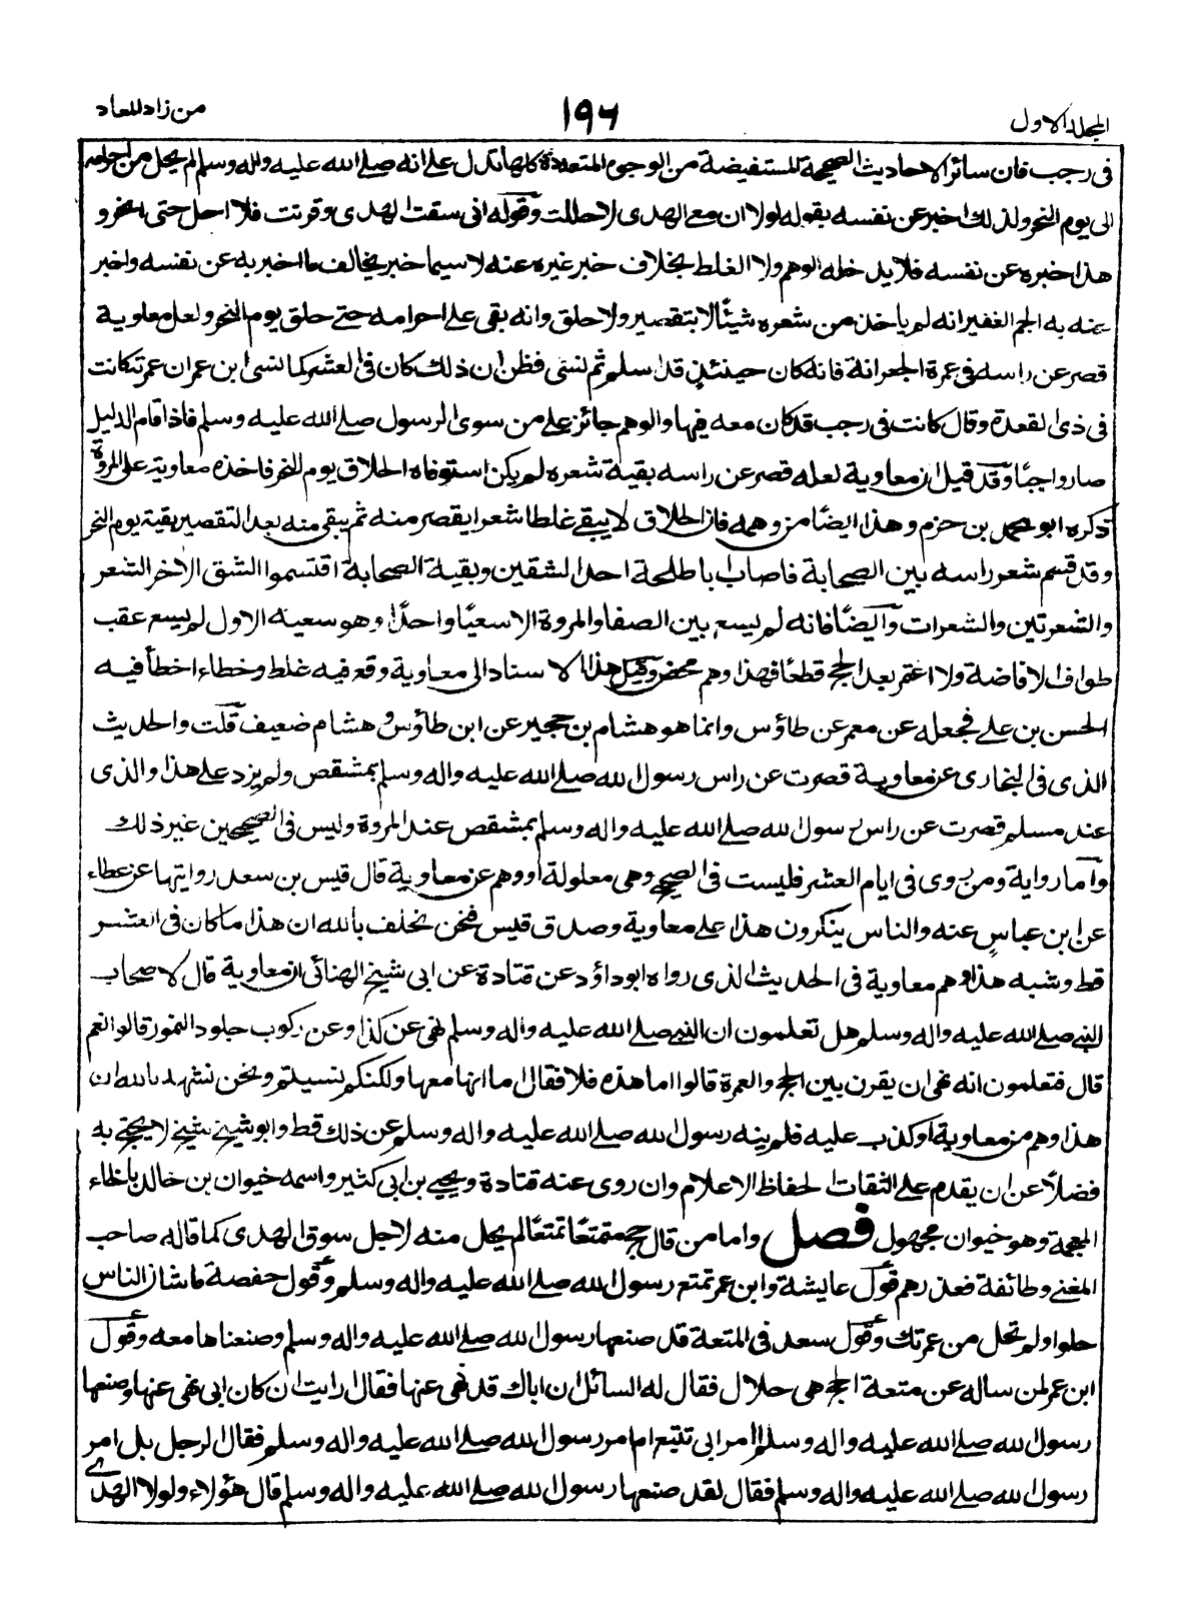 المجلد الاول
١٩٦
من زاد المعاد
فى رجب فان سائر الاحاديث الصحيحة المستفيضة من الوجوه المتعددة كلها تدل على انه صلى الله عليه واله وسلم لم يحل من احرامه
الى يوم النحر ولذلك اخبر عن نفسه بقوله لولا ان مع الهدى لاحللت وقوله انى سقت الهدى وقرنت فلا احل حتى انحر و
هذا خبره عن نفسه فلا يدخله الوهم ولا الغلط بخلاف خبر غيره عنه لا سيما خبر يخالف ما اخبر به عن نفسه واخبر
عنه به الجم الغفير انه لم ياخذ من شعره شيئًا لا بتقصير ولا حلق وانه بقى على احرامه حتى حلق يوم النحر ولعل معاوية
قصر عن راسه فى عمرة الجعرانة فانه كان حينئذ قد اسلم ثم نسى فظن ان ذلك كان فى العشر كما نسى ابن عمر ان عمرته كانت
فى ذى القعدة وقال كانت فى رجب قد كان معه فيها والوهم جائز على من سوى الرسول صلى الله عليه وسلم فاذا قام الدليل
صار واجبًا وقد قيل ان معاوية لعله قصر عن راسه بقية شعره لم يكن استوفاه الحلاق يوم النحر فاخذه معاوية على المروة
ذكره ابو محمد بن حزم وهذا ايضًا من وهمه فان الحلاق لا يبقى غلطا شعرا يقصر منه ثم يبقى منه بعد التقصير بقية يوم النحر
وقد قسم شعر راسه بين الصحابة فاصاب ابا طلحة احد الشقين وبقية الصحابة اقتسموا الشق الاخر الشعر
والشعرتين والشعرات وايضًا فانه لم يسع بين الصفا والمروة الا سعيًا واحدًا وهو سعيه الاول لم يسع عقب
طواف الافاضة ولا اعتمر بعد الحج قطعًا فهذا وهم محض وقيل هذا الاسناد الى معاوية وقع فيه غلط وخطاء اخطأ فيه
الحسن بن على فجعله عن معمر عن طاؤس وانما هو هشام بن حجير عن ابن طاؤس وهشام ضعيف قلت والحديث
الذى فى البخارى عن معاوية قصرت عن راس رسول الله صلى الله عليه واله وسلم بمشقص ولم يزد على هذا والذى
عند مسلم قصرت عن راس رسول الله صلى الله عليه واله وسلم بمشقص عند المروة وليس فى الصحيحين غير ذلك
واما رواية ومن روى فى ايام العشر فليست فى الصحيح وهى معلولة او وهم عن معاوية قال قيس بن سعد روايتها عن عطاء
عن ابن عباس عنه والناس ينكرون هذا على معاوية وصدق قيس فنحن نحلف بالله ان هذا ما كان فى العشر
قط وشبه هذا وهم معاوية فى الحديث الذى رواه ابو داؤد عن قتادة عن ابى شيخ الهنائى ان معاوية قال لاصحاب
النبى صلى الله عليه واله وسلم هل تعلمون ان النبى صلى الله عليه واله وسلم نهى عن كذا وعن ركوب جلود النمور قالوا نعم
قال فتعلمون انه نهى ان يقرن بين الحج والعمرة قالوا اما هذه فلا فقال اما انها معها ولكنكم نسيتم ونحن نشهد بالله ان
هذا وهم من معاوية او كذب عليه فلم ينه رسول الله صلى الله عليه واله وسلم عن ذلك قط وابو شيخ شيخ لا يحتج به
فضلًا عن ان يقدم على الثقات الحفاظ الاعلام وان روى عنه قتادة ويحيى بن ابى كثير واسمه خيوان بن خالد بالخاء
المعجمة وهو خيوان مجهول فصل واما من قال حج متمتعًا تمتعًا لم يحل منه لاجل سوق الهدى كما قاله صاحب
المغنى وطائفة فعذرهم قول عايشة وابن عمر تمتع رسول الله صلى الله عليه واله وسلم وقول حفصة ما شان الناس
حلوا ولم تحل من عمرتك وقول سعد فى المتعة قد صنعها رسول الله صلى الله عليه واله وسلم وصنعناها معه وقول
ابن عمر لمن ساله عن متعة الحج هى حلال فقال له السائل ان اباك قد نهى عنها فقال ارايت ان كان ابى نهى عنها وصنعها
رسول الله صلى الله عليه واله وسلم اامر ابى تتبع ام امر رسول الله صلى الله عليه واله وسلم فقال الرجل بل امر
رسول الله صلى الله عليه واله وسلم فقال لقد صنعها رسول الله صلى الله عليه واله وسلم قال هؤلاء ولولا الهدى